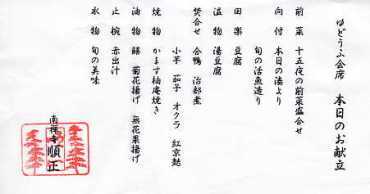 ゆどうふ会席 本日のお献立
前菜 十五夜の前菜盛合せ
向付 本日の湊より
旬の活魚造り
田楽 豆腐
温物 湯豆腐
焚合せ 合鴨 治部煮
小芋 茄子 オクラ 紅京麩
焼物 かます柚庵焼き
油物 鱧 菊花揚げ 無花果揚げ
止椀 赤出汁
水物 旬の美味
南禅寺 順正